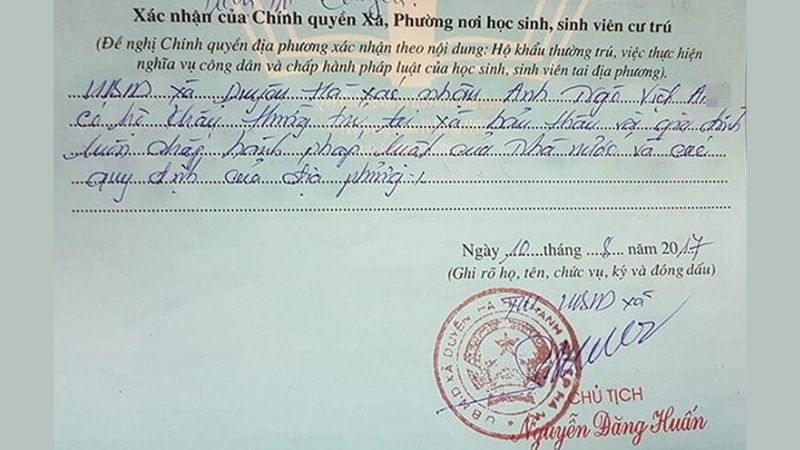 Xác nhận của Chính quyền Xã, Phường nơi học sinh, sinh viên cư trú
(Đề nghị Chính quyền địa phương xác nhận theo nội dung: Hộ khẩu thường trú, việc thực hiện
nghĩa vụ công dân và chấp hành pháp luật của học sinh, sinh viên tai địa phương).
UBND xã Duyên Hà xác nhận Anh Ngô Việt A
có hộ khẩu thường trú tại xã bản thân và gia đình
luôn chấp hành pháp luật của Nhà nước và các
quy định của địa phương./.
Ngày 10 tháng 8 năm 2017
(Ghi rõ họ, tên, chức vụ, ký và đóng dấu)
TM UBND xã
U.B.N.D XÃ DUYÊN HÀ
CHỦ TỊCH
Nguyễn Đăng Huấn